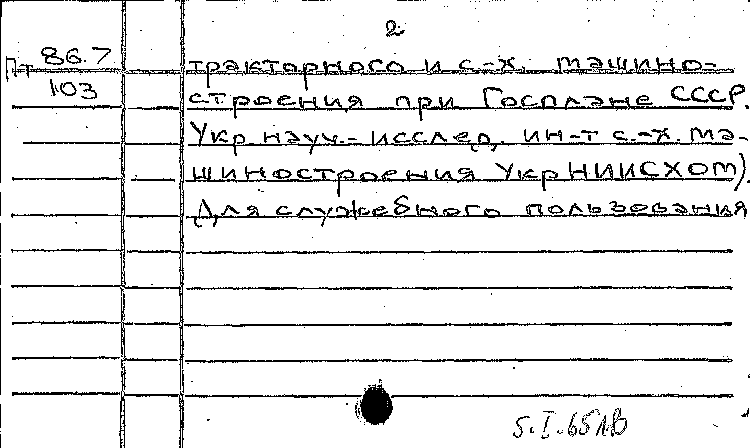 2
П-т 86.7
103
тракторного и с.-х. машино-
строения при Госплане СССР.
Укр науч.-исслед, ин-т с.-х. ма-
шиностроения УкрНИИСХОМ).
Для служебного пользования
5.I.65